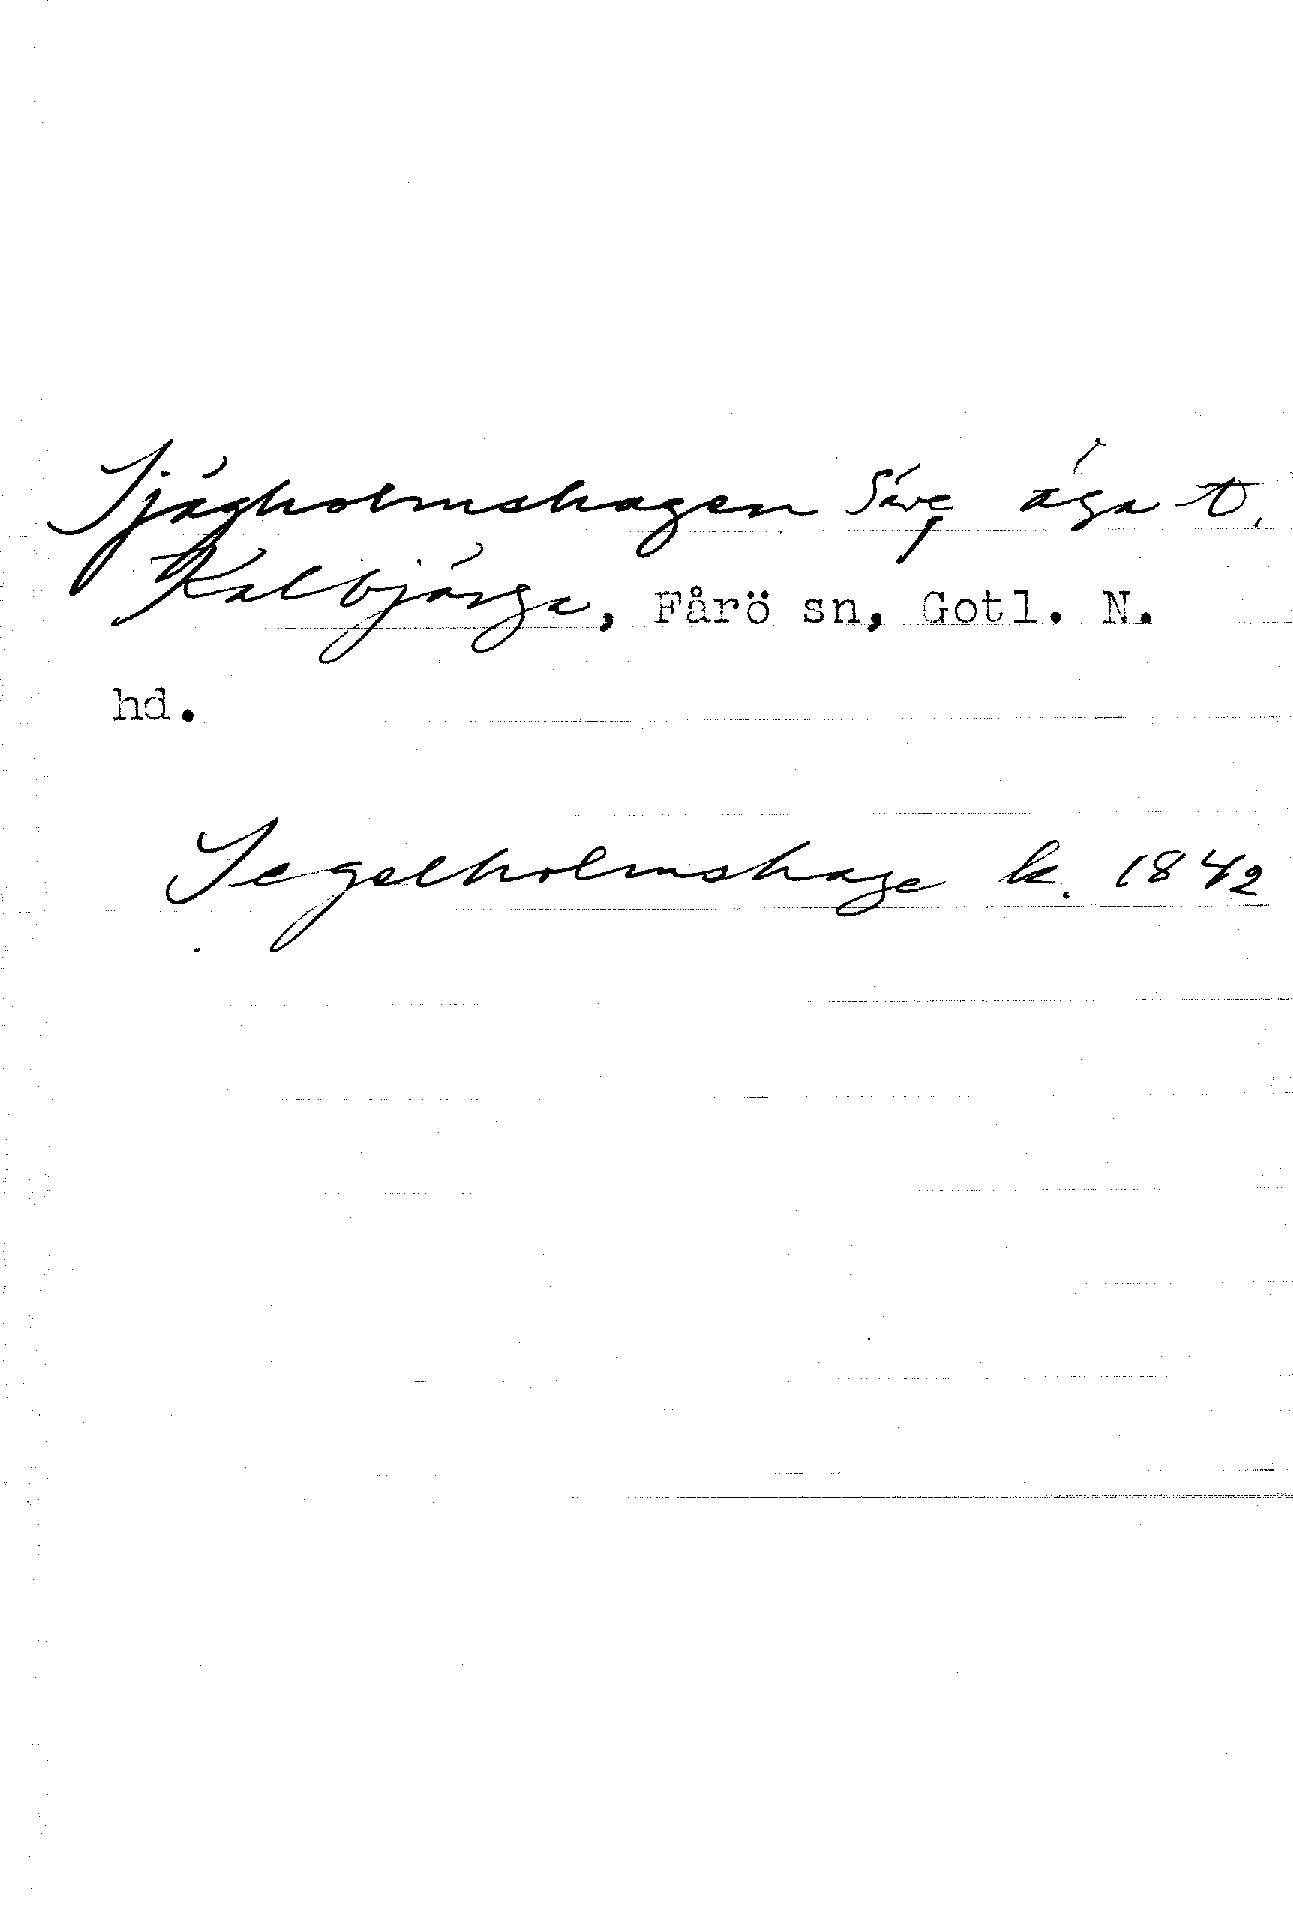 Sjägholmshagen Säve äga t.
Kalbjärga, Fårö sn, Gotl. N.
hd.
Segelholmshage k. 1842